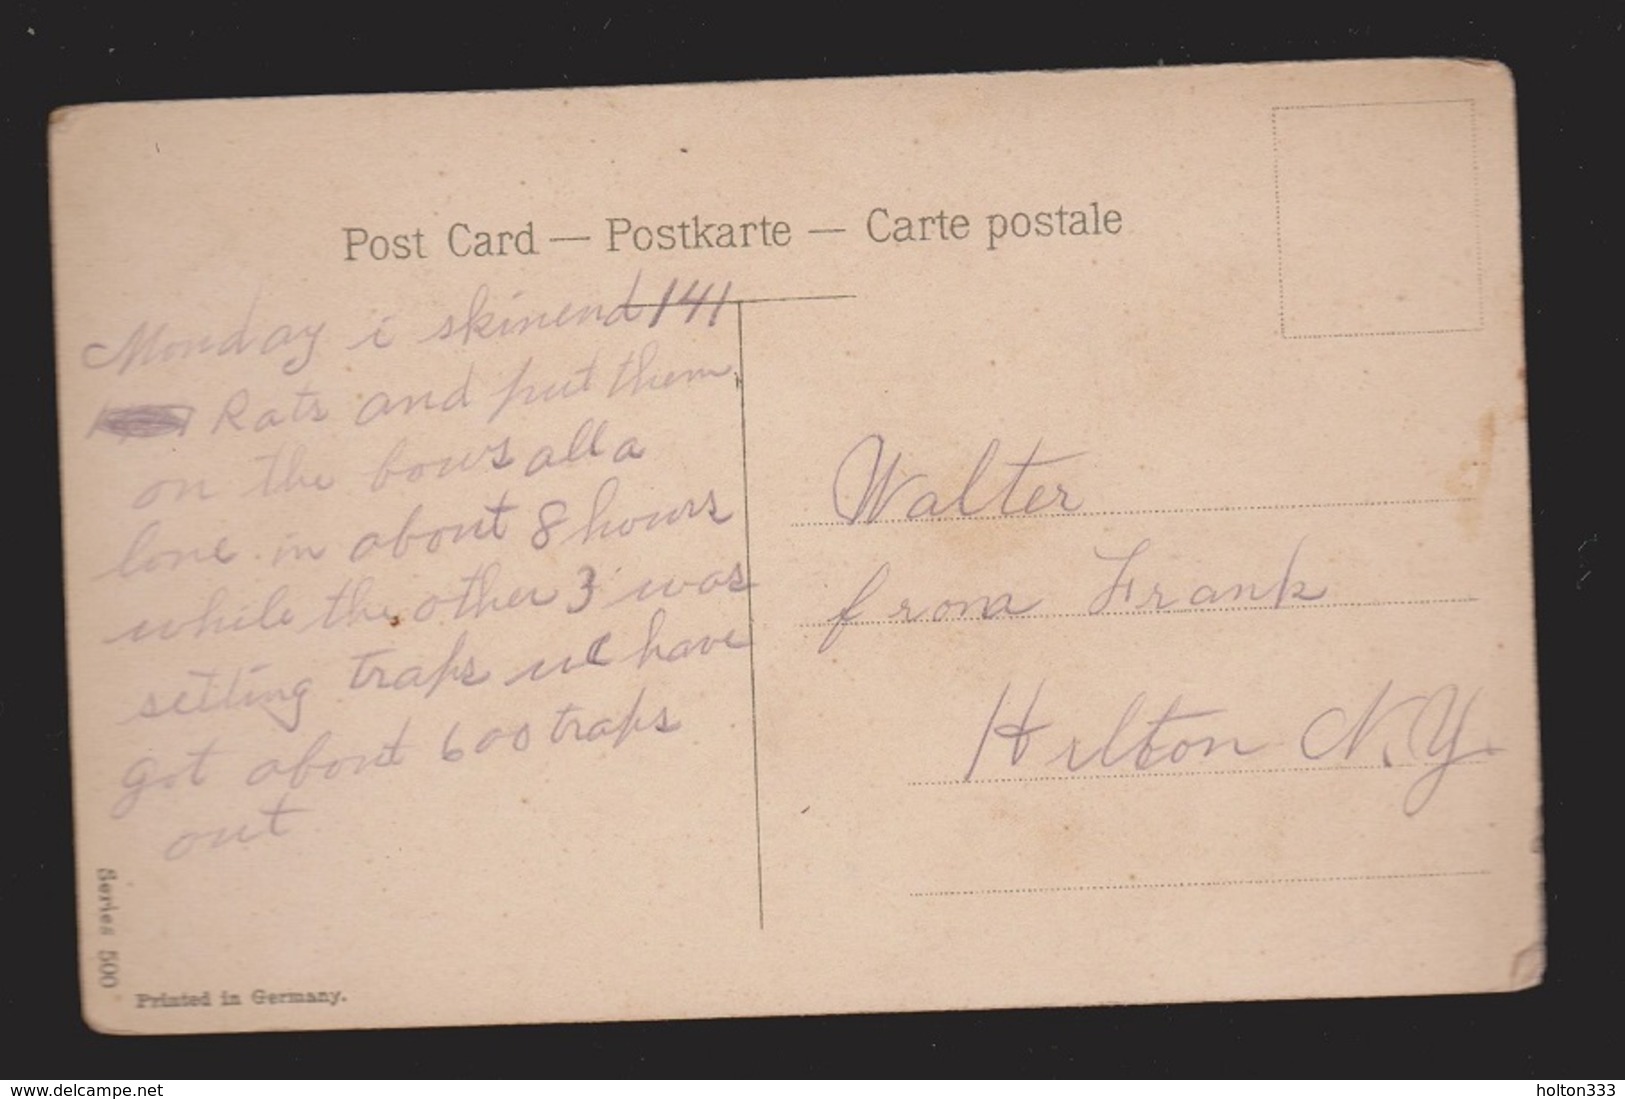 Post Card — Postkarte — Carte postale
Monday i skinend 141
Rats and put them
on the bows all a
lone in about 8 hours
while the other 3 was
setting traps we have
got about 600 traps
out
Walter
from Frank
Hilton N.Y.
Series 500
Printed in Germany.
www.delcampe.net
holton333